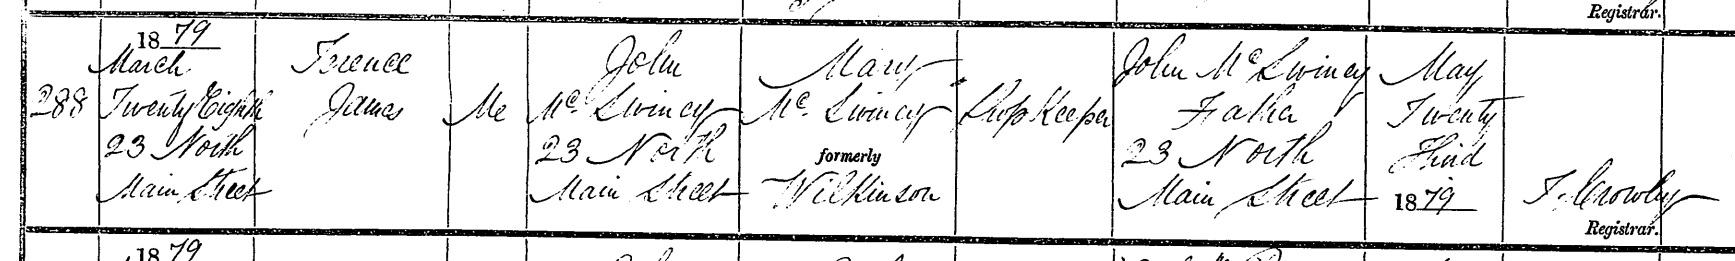 Registrar.
1879
March
Twenty Eighth
23 North
Main Street
288
Terence
James
Me
John
McSwiney
23 North
Main Street
Mary
McSwiney
formerly
Wilkinson
Shop Keeper
John McSwiney
Father
23 North
Main Street
May
Twenty
Third
1879
Crowley
Registrar.
1879